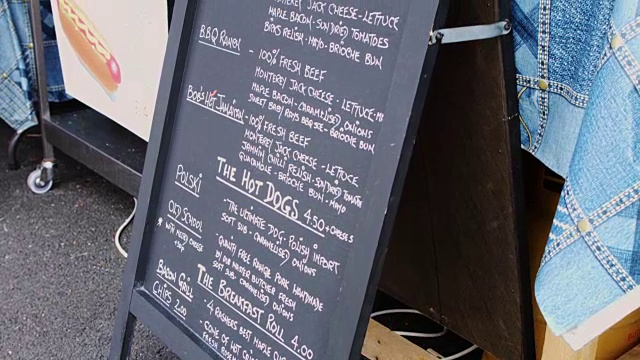 MONTEREY JACK CHEESE - LETTUCE
MAPLE BACON - SUNDRIED TOMATOES
BIRKS RELISH - MAYO - BRIOCHE BUN
B.B.Q RANCH - 100% FRESH BEEF
MONTEREY JACK CHEESE - LETTUCE
MAPLE BACON - CARAMELISED ONIONS
SWEET BABY RAYS BBQ SCE - BRIOCHE BUN
BOB'S HOT JAMAICAN - 100% FRESH BEEF
MONTEREY JACK CHEESE - LETTUCE
JAMMIN CHILLI RELISH - SUNDRIED TOMATO
GUACAMOLE - BRIOCHE BUN - MAYO
THE HOT DOGS 4.50
POLSKI - THE ULTIMATE DOG - POLISH IMPORT
SOFT SUB - CARAMELISED ONIONS
OLD SCHOOL - QUALITY FREE RANGE PORK HANDMADE
BY OUR MASTER BUTCHER FRESH
SOFT SUB - CARAMELISED ONIONS
* WITH MELTED CHEESE
+50p
THE BREAKFAST ROLL 4.00
BACON GRILL - 4 RASHERS BEST MAPLE
CHIPS 2.00